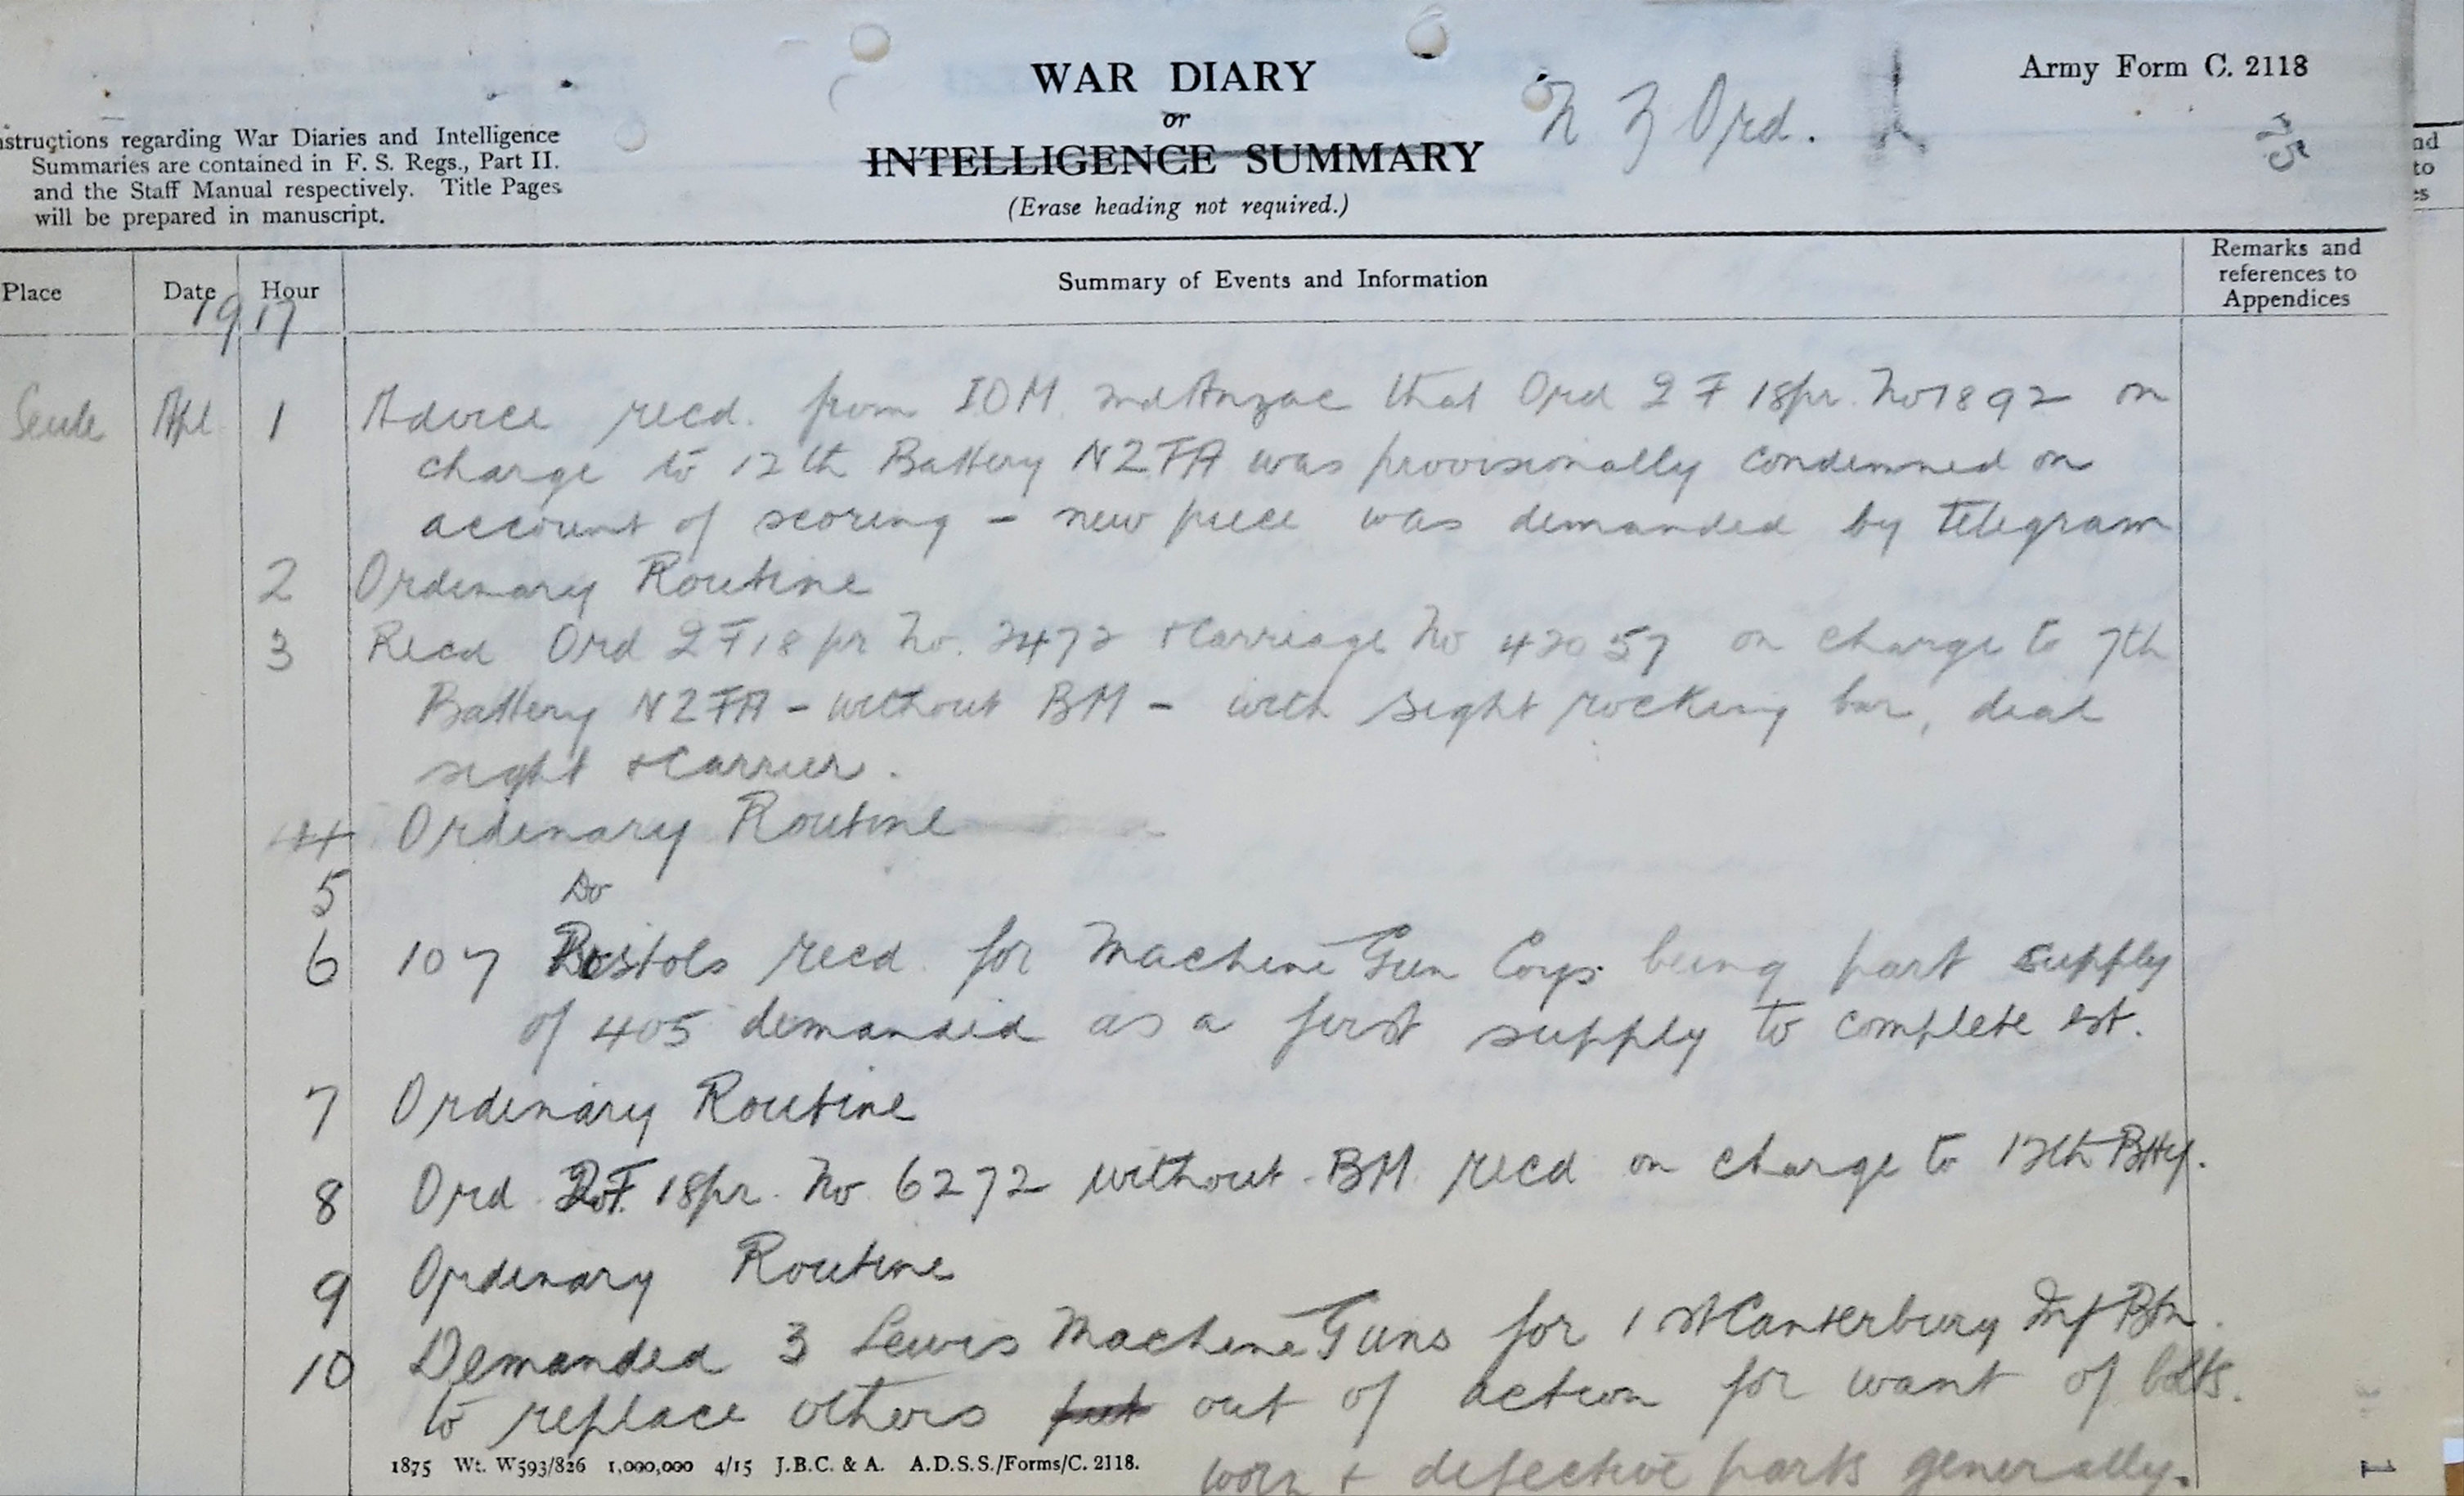 WAR DIARY
or
INTELLIGENCE SUMMARY
(Erase heading not required.)
N Z Ord.
Army Form C. 2118
75
nstructions regarding War Diaries and Intelligence
Summaries are contained in F. S. Regs., Part II.
and the Staff Manual respectively. Title Pages
will be prepared in manuscript.
Place Date Hour Summary of Events and Information Remarks and references to Appendices
1917
Seule Apl 1 Advice recd. from IOM 2nd Anzac that Ord Q F 18pr. No 7892 on
charge to 12th Battery NZFA was provisionally condemned on
account of scoring - new piece was demanded by telegram
2 Ordinary Routine
3 Recd Ord Q F 18 pr No. 2472 + Carriage No 42057 on charge to 7th
Battery NZFA - without BM - with sight rocking bar, dial
sight + Carrier.
4 Ordinary Routine
5 Do
6 107 Pistols recd for Machine Gun Coys being part supply
of 405 demanded as a first supply to complete est.
7 Ordinary Routine
8 Ord Q.F. 18pr. No 6272 without BM recd on charge to 12th Bty.
9 Ordinary Routine
10 Demanded 3 Lewis Machine Guns for 1st Canterbury Inf Btn.
to replace others put out of action for want of bolts.
worn + defective parts generally.
1875 Wt. W593/826 1,000,000 4/15 J.B.C. & A. A.D.S.S./Forms/C. 2118.
1